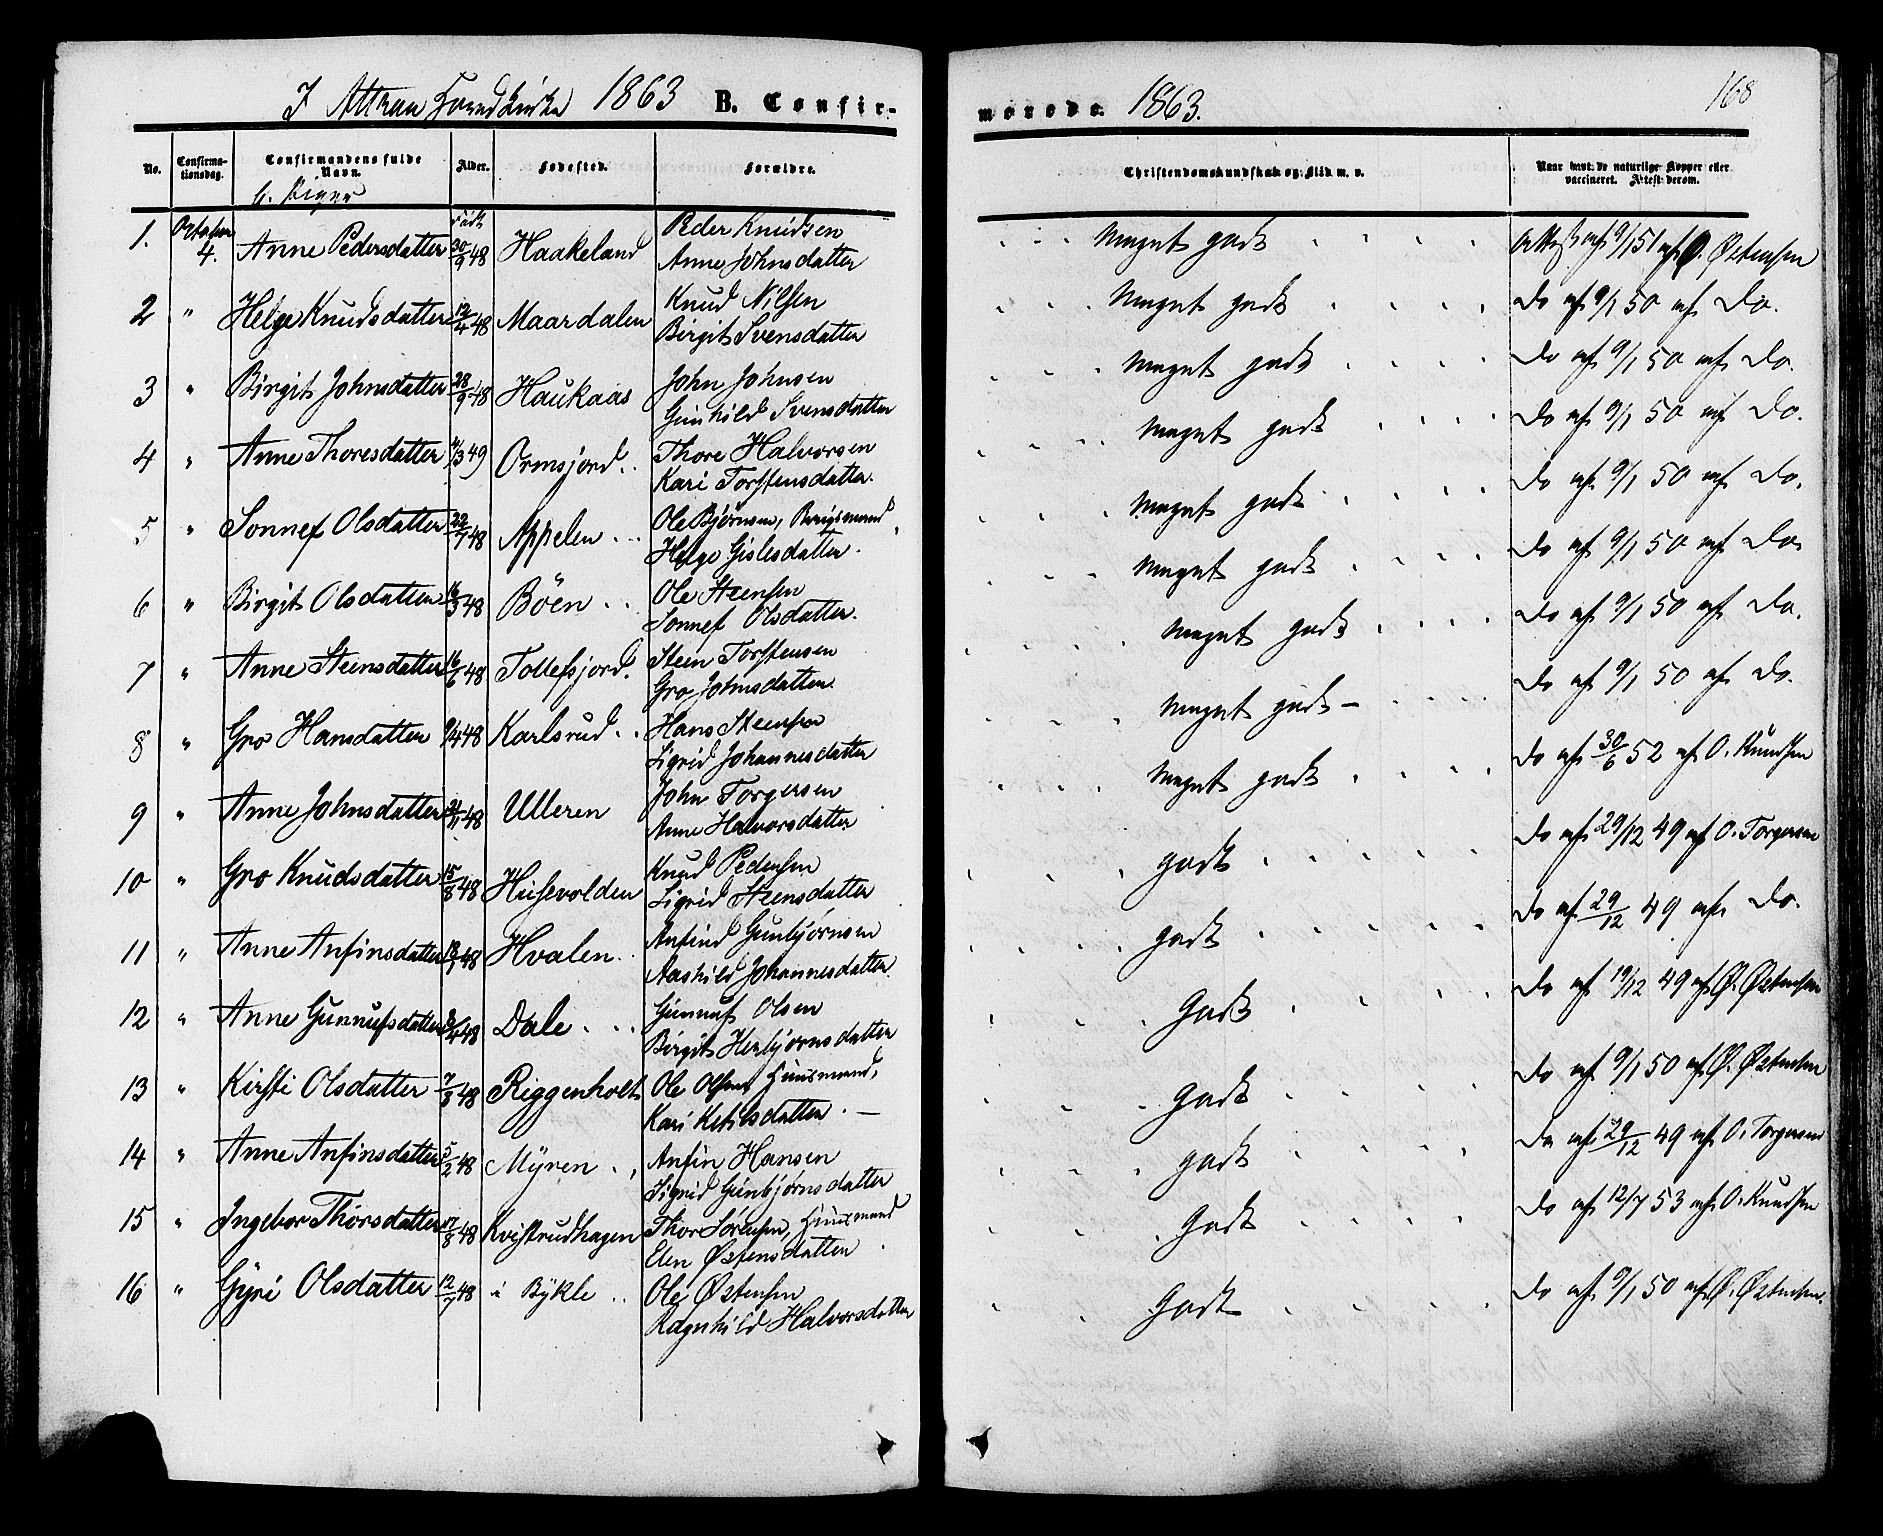 I Attraa Hovedkirke 1863 B. Confir-
merede. 1863.
168
No. Confirmationsdag. Confirmandens fulde Navn. Alder. Fødested. Forældre. Christendomskundskab og Flid m. v. Naar havt de naturlige Kopper eller vaccineret. Attest derom.
b. Piger
født
1. October 4. Anne Pedersdatter 30/9 48 Haakeland Peder Knudsen Anne Johnsdatter Meget godt Attest af 9/1 51 af Ø. Østensen
2 " Helge Knudsdatter 12/4 48 Maardalen Knud Nilsen Birgit Svensdatter Meget godt Do af 9/1 50 af Do.
3 " Birgit Johnsdatter 28/9 48 Haukaas John Johnsen Gunhild Svensdatter Meget godt Do af 9/1 50 af Do.
4 " Anne Thoresdatter /3 49 Ormsjord Thore Halvorsen Kari Torstensdatter. Meget godt Do af 9/1 50 af Do.
5 " Sonnef Olsdatter 22/7 48 Appelen Ole Bjørnsen, Helge Gislesdatter. Meget godt Do af 9/1 50 af Do.
6 " Birgit Olsdatter 16/3 48 Böen Ole Steensen Sonnef Olsdatter. Meget godt Do af 9/1 50 af Do.
7 " Anne Steensdatter 16/6 48 Tollefsjord. Steen Torstensen Gro Johnsdatter. Meget godt Do af 9/1 50 af Do.
8 " Gro Hansdatter 9/4 48 Karlsrud Hans Steensen Sigrid Johannesdatter Meget godt Do af 9/1 50 af Do.
9 " Anne Johnsdatter /11 48 Ulleren John Torgersen Anne Halvorsdatter Meget godt Do af 30/6 52 af O. Knudsen
10 " Gro Knudsdatter 15/8 48 Husevolden Knud Pedersen Sigrid Steensdatter godt Do af 29/12 49 af O. Torgersen
11 " Anne Anfinsdatter 48 Hvalen Anfind Gunbjørnsen Aashild Johannesdatter godt Do af 29/12 49 af Do.
12 " Anne Gunnufsdatter 48 Dale Gunnuf Olsen Birgit Herbjørnsdatter Godt Do af 19/12 49 af Ø. Østensen
13 " Kirsti Olsdatter 7/3 48 Riggenholt Ole Olsen, Huusmand, Kari Ketilsdatter. Godt Do af 9/1 50 af Ø. Østensen
14 " Anne Anfinsdatter 5/2 48 Myren Anfin Hansen Sigrid Gunbjørnsdatter godt Do af 29/12 49 af O. Torgersen
15 " Ingebor Thorsdatter 17/8 48 Kvistrudhagen Thor Sörensen, Huusmand Elen Østensdatter Godt Do af 12/7 53 af O. Knudsen
16 " Gyri Olsdatter 12/7 48 i Bykle Ole Østensen Ragnhild Halvorsdatter Godt Do af 9/1 50 af Ø. Østensen.